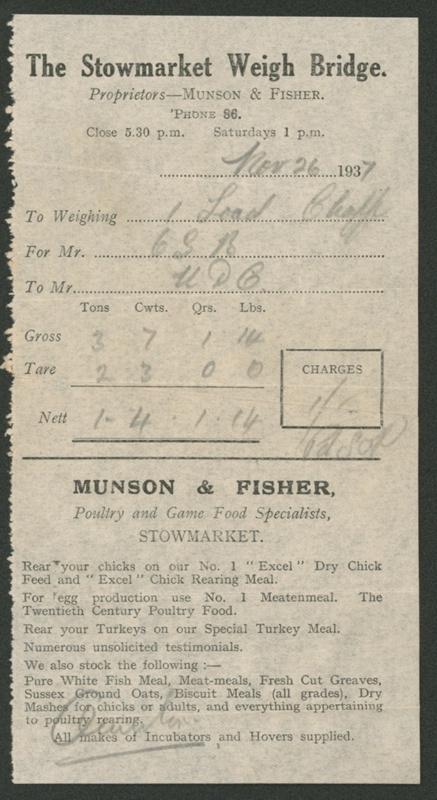 The Stowmarket Weigh Bridge.
Proprietors—MUNSON & FISHER.
'PHONE 86.
Close 5.30 p.m. Saturdays 1 p.m.
Nov 26 1937
To Weighing 1 Load
For Mr.
To Mr. U D C
Tons Cwts. Qrs. Lbs.
Gross 3 7 1 14
Tare 2 3 0 0
CHARGES
1/-
Nett 1 - 4 . 1 . 14
MUNSON & FISHER,
Poultry and Game Food Specialists,
STOWMARKET.
Rear your chicks on our No. 1 "Excel" Dry Chick
Feed and "Excel" Chick Rearing Meal.
For egg production use No. 1 Meatenmeal. The
Twentieth Century Poultry Food.
Rear your Turkeys on our Special Turkey Meal.
Numerous unsolicited testimonials.
We also stock the following :—
Pure White Fish Meal, Meat-meals, Fresh Cut Greaves,
Sussex Ground Oats, Biscuit Meals (all grades), Dry
Mashes for chicks or adults, and everything appertaining
to poultry rearing.
All makes of Incubators and Hovers supplied.